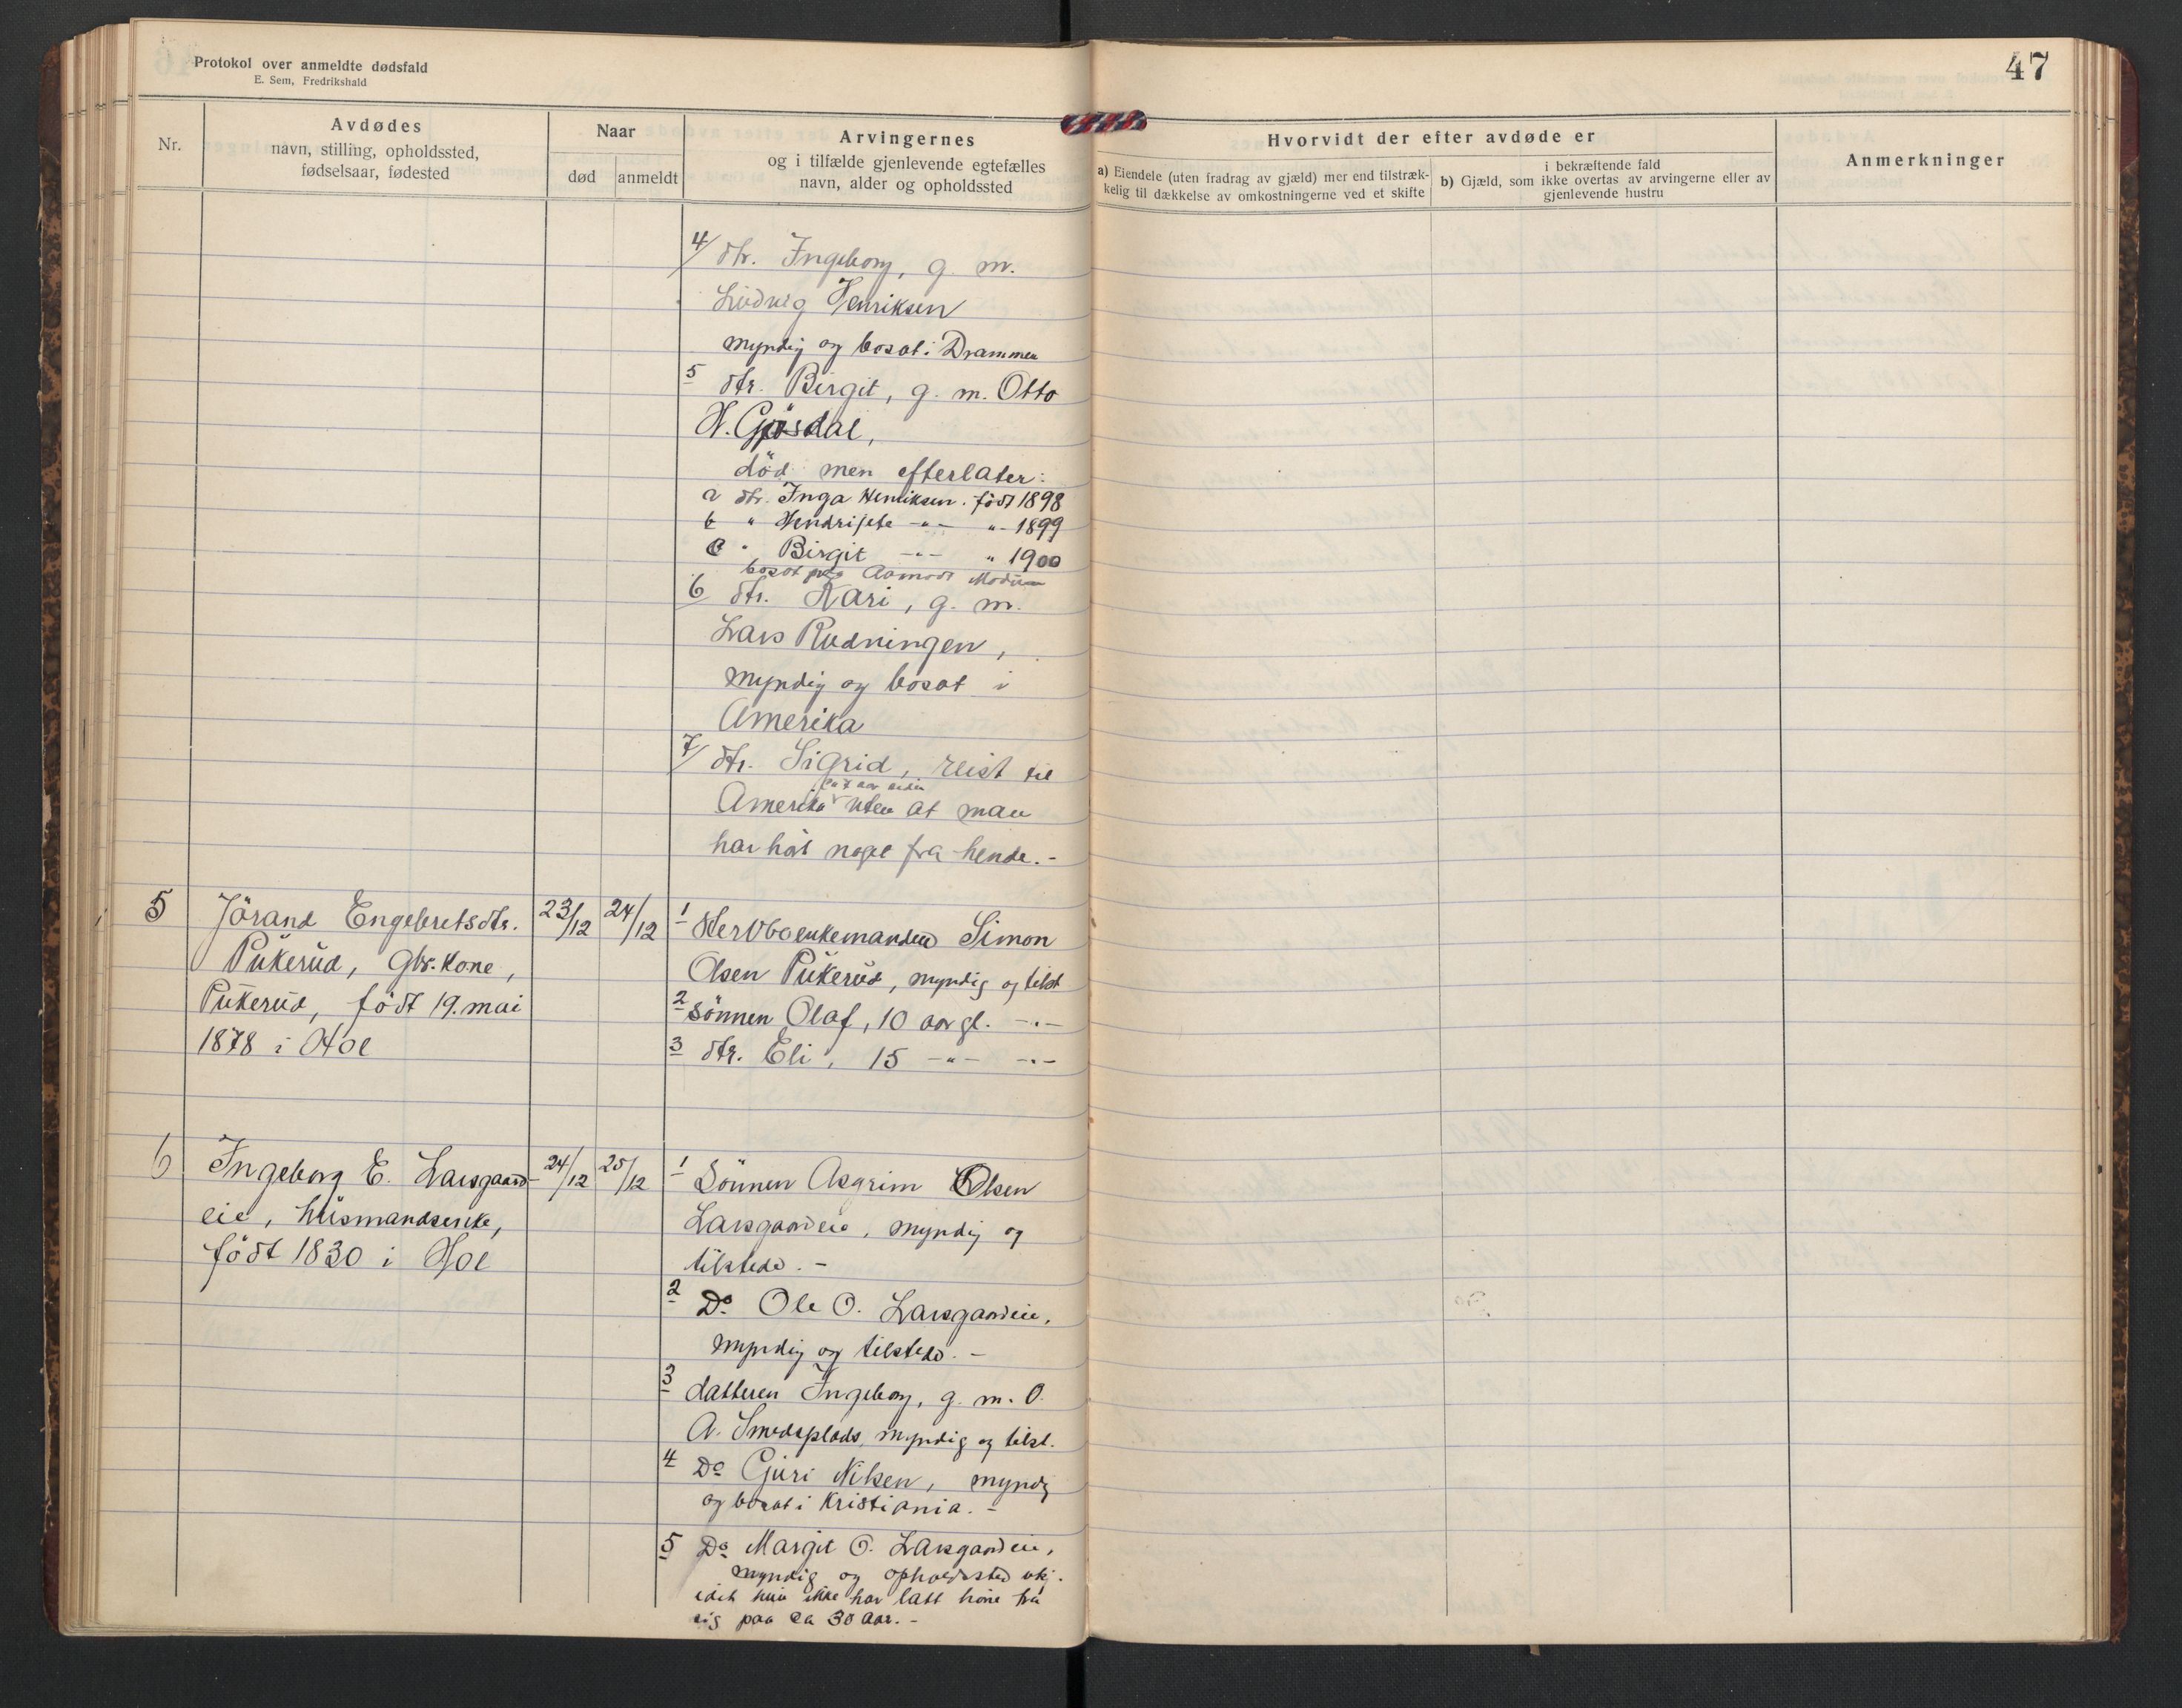 Protokol over anmeldte dødsfald
E. Sem, Fredrikshald
47
Nr.
Avdødes
navn, stilling, opholdssted,
fødselsaar, fødested
Naar
død
anmeldt
Arvingernes
og i tilfælde gjenlevende egtefælles
navn, alder og opholdssted
Hvorvidt der efter avdøde er
a) Eiendele (uten fradrag av gjæld) mer end tilstræk-
kelig til dækkelse av omkostningerne ved et skifte
i bekræftende fald
b) Gjæld, som ikke overtas av arvingerne eller av
gjenlevende hustru
Anmerkninger
4/ dtr. Ingeborg, g. m.
Ludvig Henriksen
myndig og bosat i Drammen
5 dtr. Birgit, g. m. Otto
H. Gjösdal,
död men efterlater:
a dtr. Inga Henriksen. födt 1898
b " Hendrijete -"- "- 1899
c " Birgit -"- " 1900
bosat paa Aamodt Modum
6/ dtr. Kari, g. m.
Lars Rudningen,
myndig og bosat i
Amerika
7/ dtr. Sigrid, reist til
Amerika uten at man
har hört noget fra hende.-
5 Jörand Engebretsdtr. 23/12 24/12
Pukerud, gbr. kone,
Pukerud, födt 19. mai
1878 i Hol
1 Herv boenkemanden Simon
Olsen Pukerud, myndig og tilst
2 Sönnen Olaf, 10 aar gl. -"-
3 dtr. Eli, 15 -"- -"-
6 Ingeborg E. Larsgaard- 24/12 25/12
eie, husmandsenke,
födt 1830 i Hol
1 Sönnen Asgrim Olsen
Larsgaardeie, myndig og
tilstede. -
2 Do Ole O. Larsgaardeie,
myndig og tilstede. -
3 datteren Ingeborg, g. m. O.
A. Smedsplads, myndig og tilst.
4 Do Guri Nilsen, myndig
og bosat i Kristiania. -
5 Do Margit O. Larsgaardeie,
myndig og opholdssted ukj.
idet hun ikke har latt höre fra
sig paa ca 30 aar. -